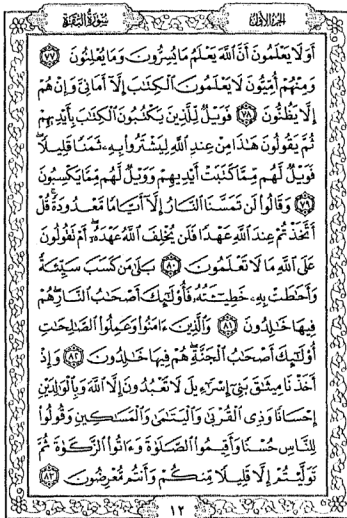 الجزء الأول سورة البقرة
أَوَلَا يَعْلَمُونَ أَنَّ اللَّهَ يَعْلَمُ مَا يُسِرُّونَ وَمَا يُعْلِنُونَ ٧٧
وَمِنْهُمْ أُمِّيُّونَ لَا يَعْلَمُونَ الْكِتَابَ إِلَّا أَمَانِيَّ وَإِنْ هُمْ
إِلَّا يَظُنُّونَ ٧٨ فَوَيْلٌ لِلَّذِينَ يَكْتُبُونَ الْكِتَابَ بِأَيْدِيهِمْ
ثُمَّ يَقُولُونَ هَٰذَا مِنْ عِندِ اللَّهِ لِيَشْتَرُوا بِهِ ثَمَنًا قَلِيلًا ۖ
فَوَيْلٌ لَهُم مِّمَّا كَتَبَتْ أَيْدِيهِمْ وَوَيْلٌ لَهُم مِّمَّا يَكْسِبُونَ
٧٩ وَقَالُوا لَن تَمَسَّنَا النَّارُ إِلَّا أَيَّامًا مَعْدُودَةً قُلْ
أَتَّخَذْتُمْ عِندَ اللَّهِ عَهْدًا فَلَن يُخْلِفَ اللَّهُ عَهْدَهُ ۖ أَمْ تَقُولُونَ
عَلَى اللَّهِ مَا لَا تَعْلَمُونَ ٨٠ بَلَىٰ مَن كَسَبَ سَيِّئَةً
وَأَحَاطَتْ بِهِ خَطِيئَتُهُ فَأُولَٰئِكَ أَصْحَابُ النَّارِ ۖ هُمْ
فِيهَا خَالِدُونَ ٨١ وَالَّذِينَ آمَنُوا وَعَمِلُوا الصَّالِحَاتِ
أُولَٰئِكَ أَصْحَابُ الْجَنَّةِ ۖ هُمْ فِيهَا خَالِدُونَ ٨٢ وَإِذْ
أَخَذْنَا مِيثَاقَ بَنِي إِسْرَائِيلَ لَا تَعْبُدُونَ إِلَّا اللَّهَ وَبِالْوَالِدَيْنِ
إِحْسَانًا وَذِي الْقُرْبَىٰ وَالْيَتَامَىٰ وَالْمَسَاكِينِ وَقُولُوا
لِلنَّاسِ حُسْنًا وَأَقِيمُوا الصَّلَاةَ وَآتُوا الزَّكَاةَ ثُمَّ
تَوَلَّيْتُمْ إِلَّا قَلِيلًا مِّنكُمْ وَأَنتُم مُّعْرِضُونَ ٨٣
١٢